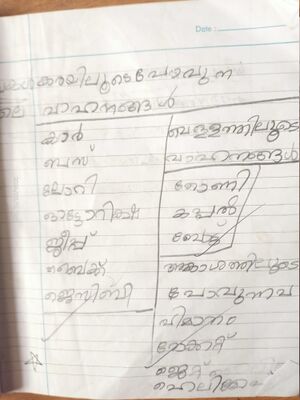 Date :
കരയിലൂടെ പോവുന്ന
വാഹനങ്ങൾ
കാർ
ബസ്
ലോറി
ഓട്ടോറിക്ഷ
ജീപ്പ്
ബൈക്ക്
ജെസിബി
വെള്ളത്തിലൂടെ
വാഹനങ്ങൾ
തോണി
കപ്പൽ
ബോട്ട്
ആകാശത്തിലൂടെ
പോവുന്നവ
വിമാനം
റോക്കറ്റ്
ജെറ്റ്